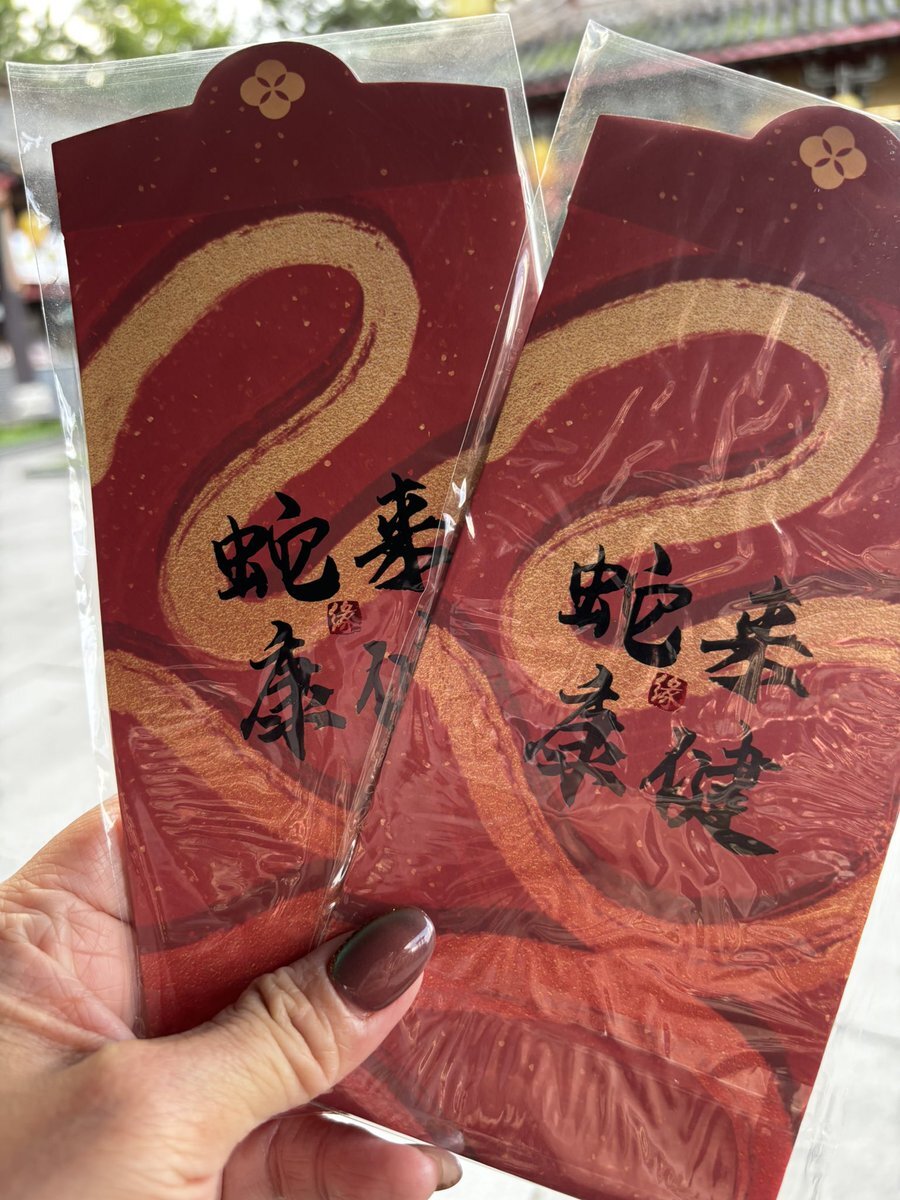 蛇来
缘
康
蛇来
缘
康健